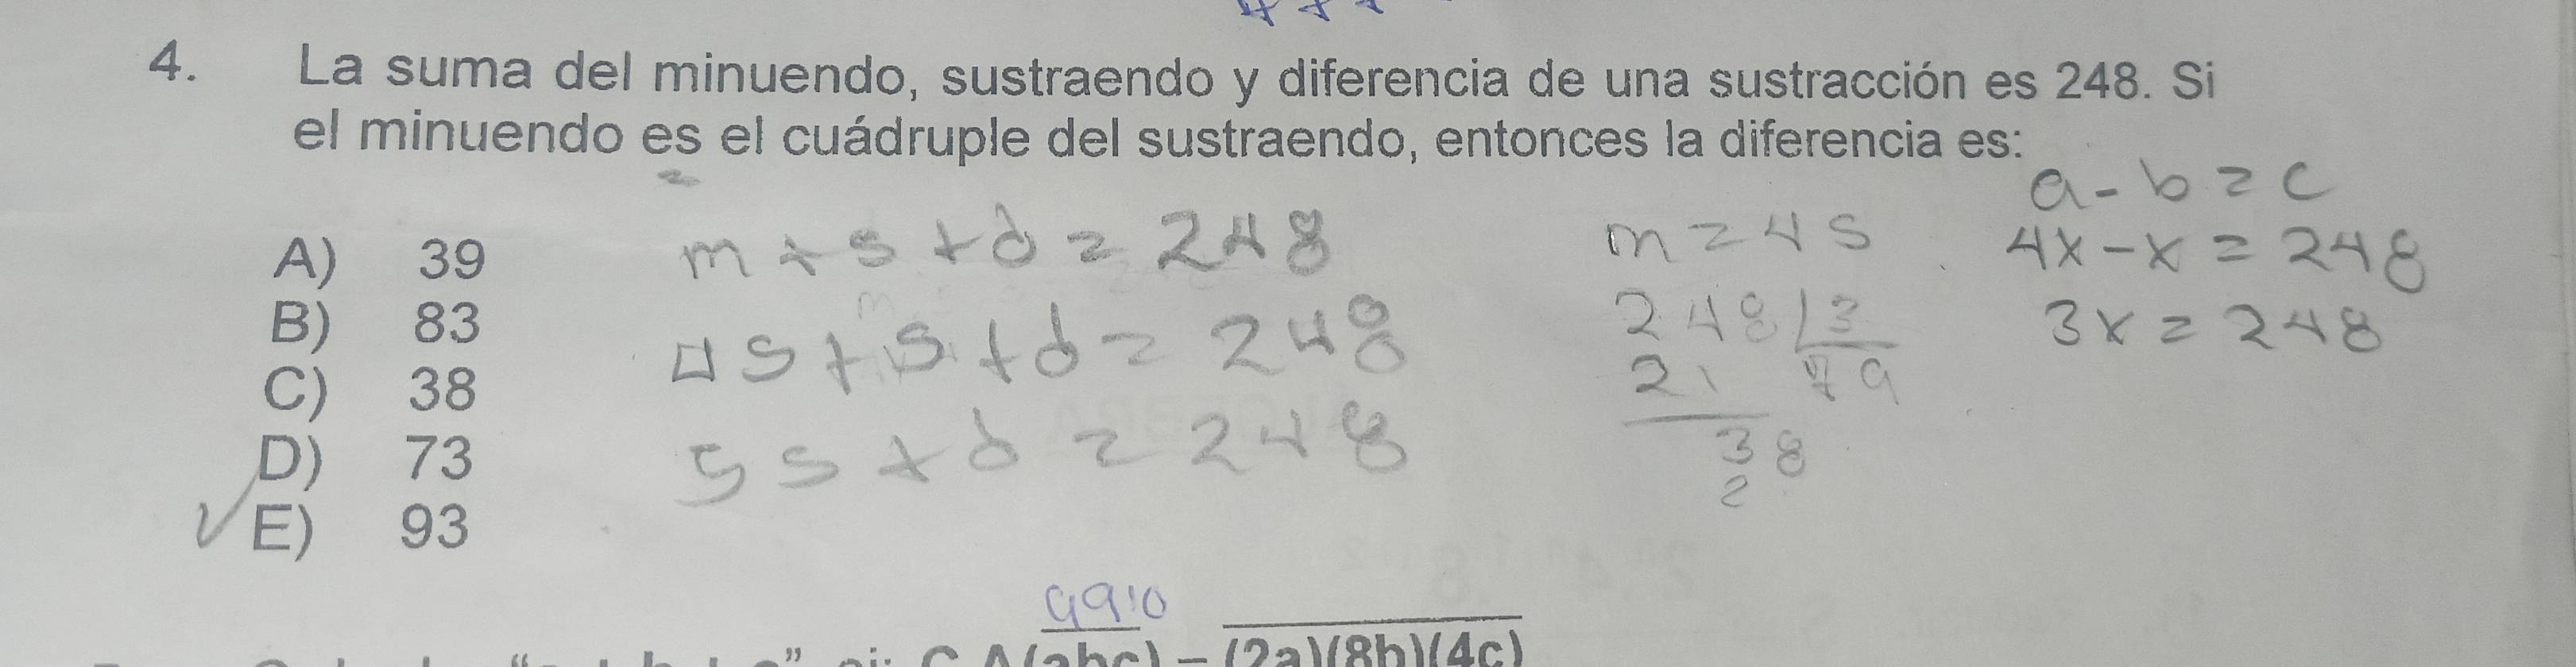 4. La suma del minuendo, sustraendo y diferencia de una sustracción es 248. Si
el minuendo es el cuádruple del sustraendo, entonces la diferencia es:
a - b = c
A) 39
m + s + d = 248
m = 4s
4x - x = 248
B) 83
4s + s + d = 248
248 | 3
3x = 248
C) 38
21 79
D) 73
5s + d = 248
38
2
✓ E) 93
9910
C.A(abc) = (2a)(8b)(4c)